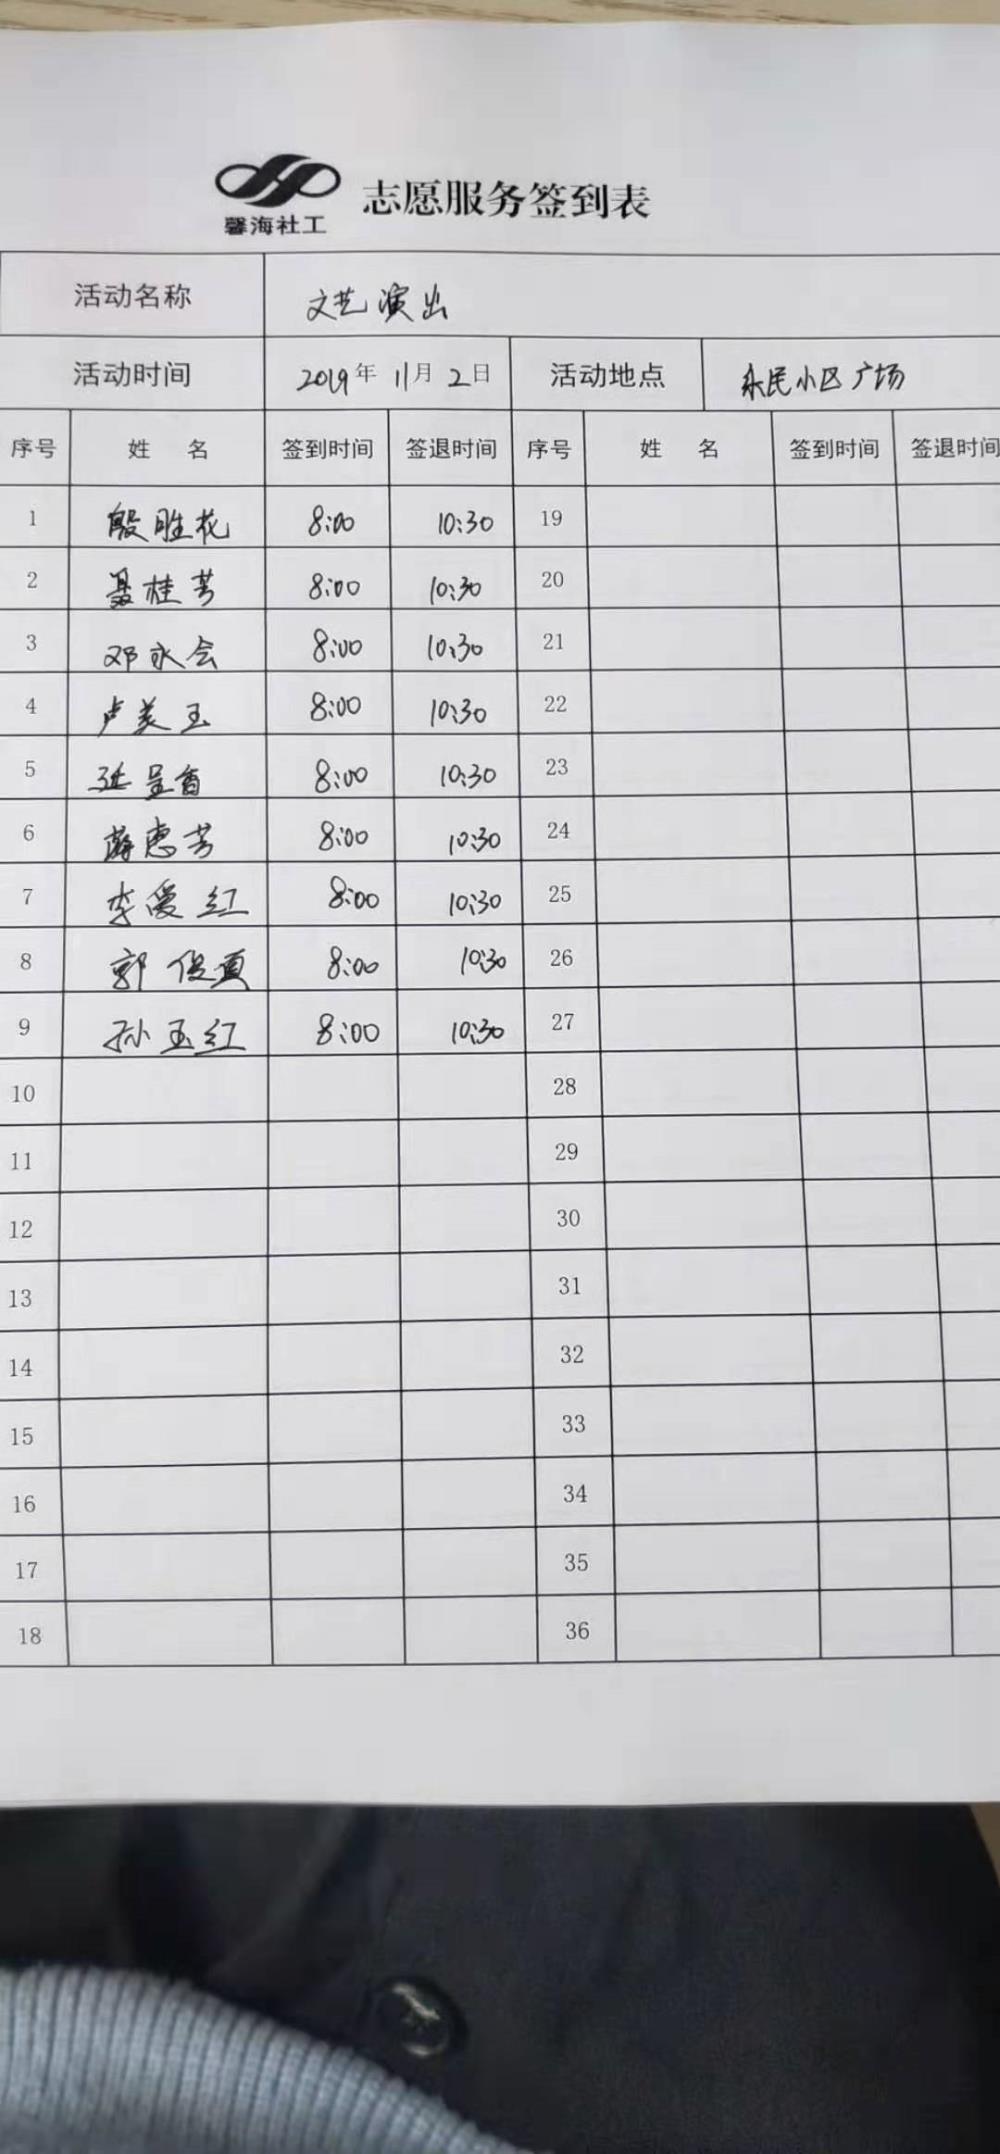 馨海社工
志愿服务签到表
活动名称 文艺演出
活动时间 2019年 11月 2日 活动地点 永民小区广场
序号 姓 名 签到时间 签退时间 序号 姓 名 签到时间 签退时间
1 殷胜花 8:00 10:30 19
2 聂桂芳 8:00 10:30 20
3 邓永会 8:00 10:30 21
4 卢美玉 8:00 10:30 22
5 8:00 10:30 23
6 薛惠芳 8:00 10:30 24
7 李爱红 8:00 10:30 25
8 郭俊 8:00 10:30 26
9 孙玉红 8:00 10:30 27
10 28
11 29
12 30
13 31
14 32
15 33
16 34
17 35
18 36